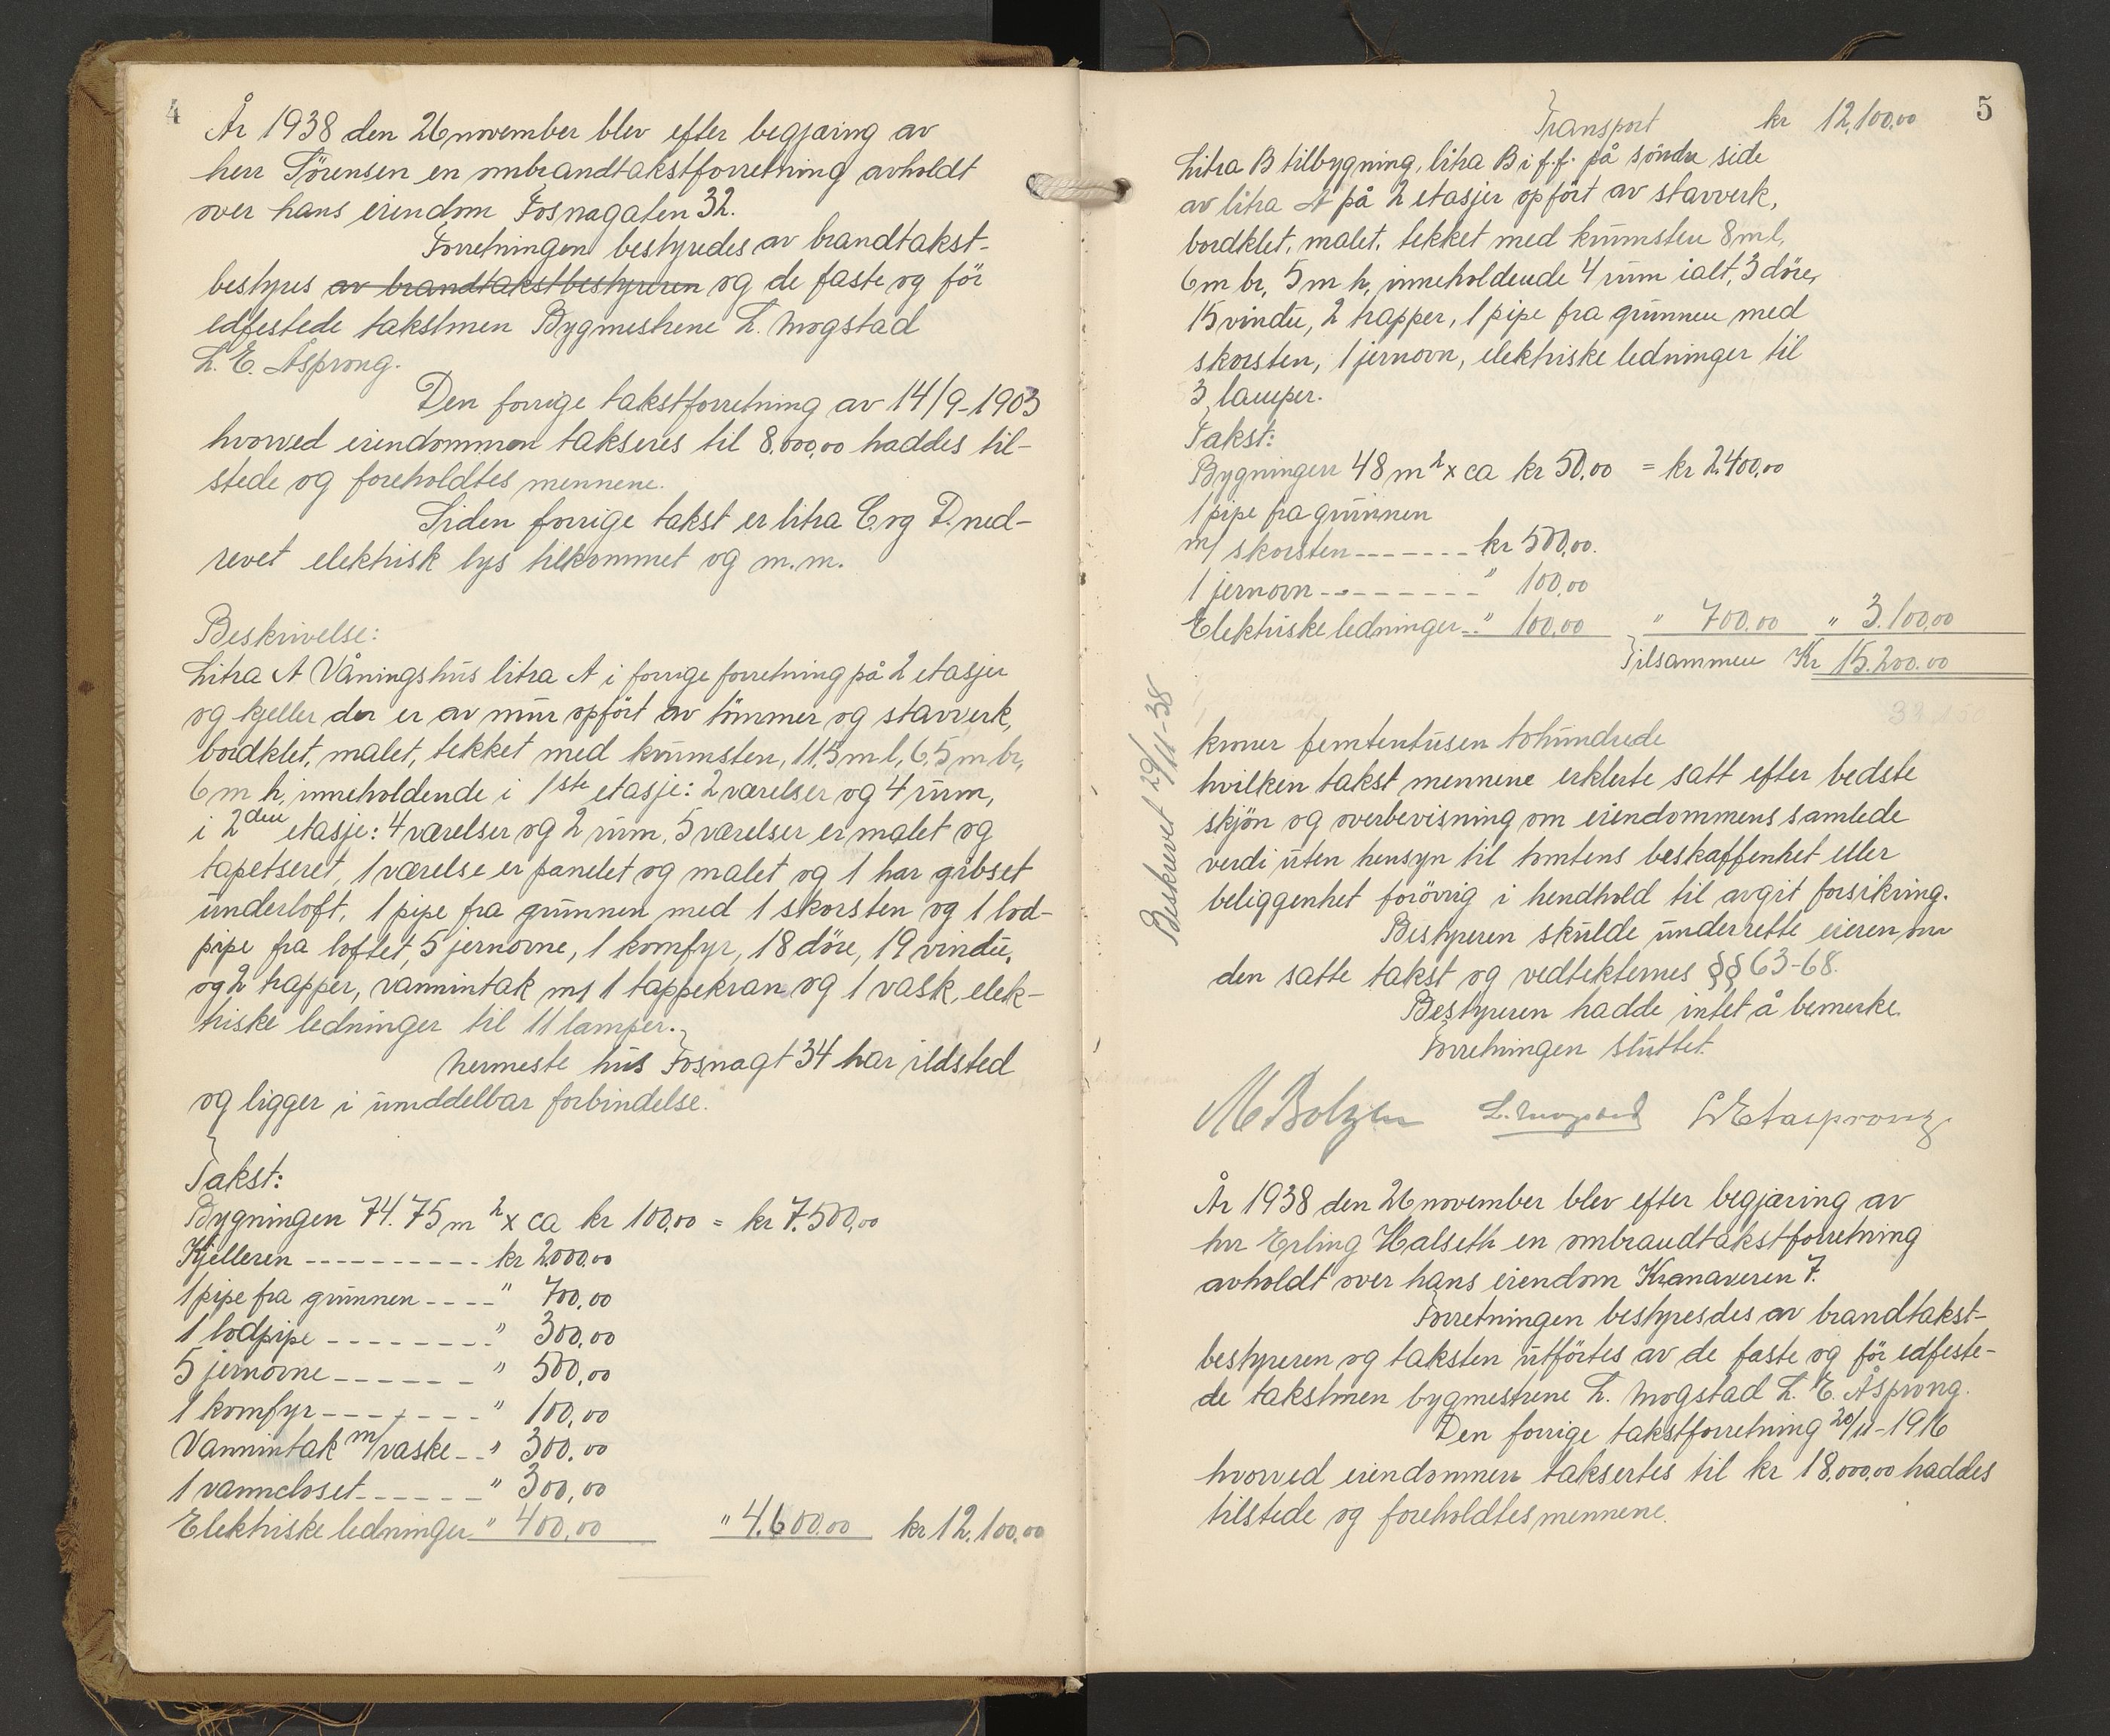 4
År 1938 den 26 november blev efter begjæring av
herr Sörensen en ombrandtakstforretning avholdt
over hans eiendom Fosnagaten 32.
Forretningen bestyredes av brandtakst-
bestyres av brandtakstbestyreren og de faste og för
edfestede takstmen Bygmestrene L. Mogstad
L. E. Åsprong.
Den forrige takstforretning av 14/9-1903
hvorved eiendommen takseres til 8.000,00 haddes til-
stede og foreholdtes mennene.
Siden forrige takst er litra C. og D. ned-
revet elektrisk lys tilkommet og m.m.
Beskrivelse:
Litra A Våningshus litra A i forrige forretning på 2 etasjer
og kjeller der er av mur opfört av tömmer og stavverk,
bordklet, malet, tekket med krumsten, 11,5 m l, 6,5 m br,
6 m h, inneholdende i 1ste etasje: 2 værelser og 4 rum,
i 2den etasje: 4 værelser og 2 rum, 5 værelser er malet og
tapetseret, 1 værelse er panelet og malet og 1 har gibset
underloft, 1 pipe fra grunnen med 1 skorsten og 1 lod-
pipe fra loftet, 5 jernovne, 1 komfyr, 18 döre, 19 vindu,
og 2 trapper, vannintak m/ 1 tappekran og 1 vask, elek-
triske ledninger til 11 lamper.
Nermeste hus Fosnagt 34 har ildsted
og ligger i umddelbar forbindelse.
Takst:
Bygningen 74.75 m2 x ca kr 100,00 = kr 7.500,00
Kjelleren ---------- kr 2000.00
1 pipe fra grunnen ---- " 700,00
1 lodpipe -------- " 300,00
5 jernovne ------ " 500,00
1 komfyr -------- " 100,00
Vannintak m/vaske -- " 300,00
1 vanncloset ------ " 300,00
Elektriske ledninger " 400,00 " 4.600.00 kr 12.100,00
5
Transport kr 12,100,00
Litra B tilbygning, litra B i f.f. på söndre side
av litra A på 2 etasjer opfört av stavverk,
bordklet, malet, tekket med krumsten 8 m l,
6 m br, 5 m h, inneholdende 4 rum ialt, 3 döre,
15 vindu, 2 trapper, 1 pipe fra grunnen med
skorsten, 1 jernovn, elektriske ledninger til
3 lamper.
Takst:
Bygningen 48 m2 x ca kr 50,00 = kr 2.400,00
1 pipe fra grunnen
m/ skorsten ------- kr 500,00.
1 jernovn --------- " 100,00
Elektriske ledninger -- " 100,00 " 700.00 " 3.100,00
Tilsammen Kr 15.200.00
Beskrevet 29/11-38
kroner femtentusen tohundrede
hvilken takst mennene erklerte satt efter bedste
skjön og overbevisning om eiendommens samlede
verdi uten hensyn til tomtens beskaffenhet eller
beliggenhet forövrig i hendhold til avgit forsikring.
Bestyreren skulde underrette eieren om
den satte takst og vedtekternes §§ 63-68.
Bestyreren hadde intet å bemerke.
Forretningen sluttet.
M Bolzen L. Mogstad L E Aasprong
År 1938 den 26 november blev efter begjæring av
hr Erling Halseth en ombrandtakstforretning
avholdt over hans eiendom Kranaveren 7.
Forretningen bestyresdes av brandtakst-
bestyreren og taksten utförtes av de faste og för edfeste-
de takstmen bygmestrene L. Mogstad L. E. Åsprong.
Den forrige takstforretning 20/11-1916
hvorved eiendommen taksertes til kr 18.000,00 haddes
tilstede og foreholdtes mennene.